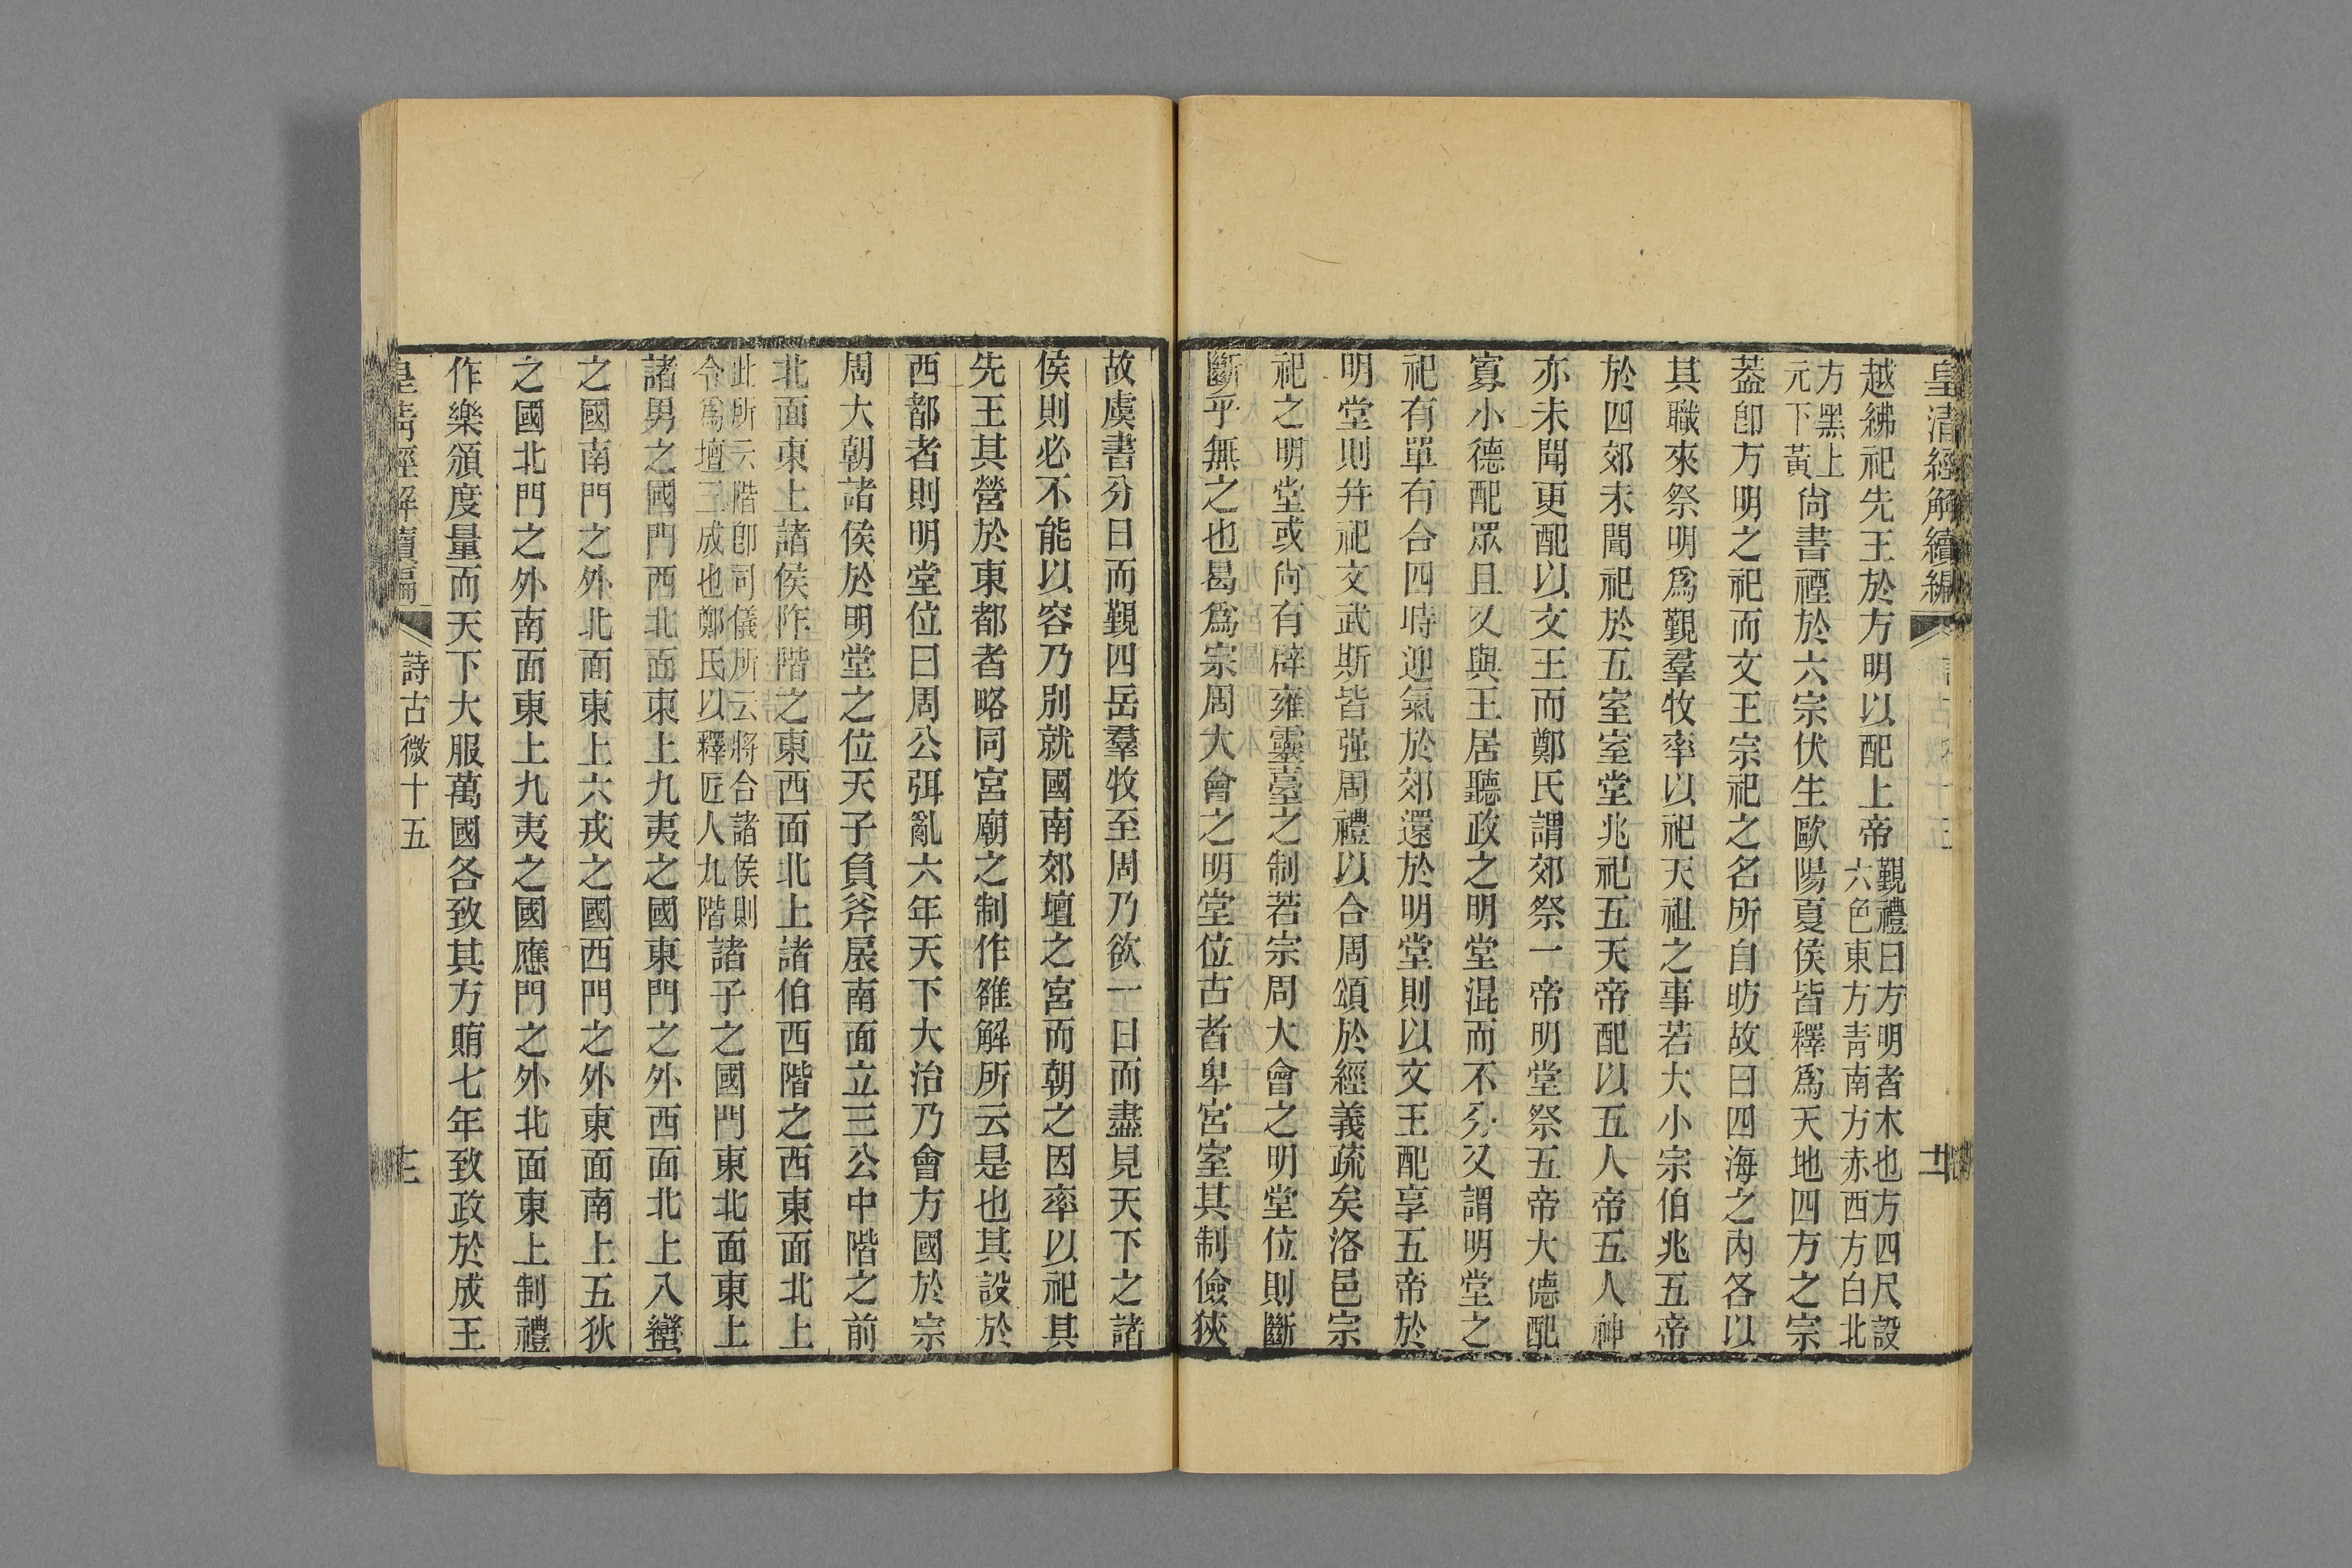 皇清經解續編
越紼祀先王於方明以配上帝覲禮曰方明者木也方四尺設六色東方靑南方赤西方白北
方黑上元下黃尙書禋於六宗伏生歐陽夏侯皆釋爲天地四方之宗
蓋卽方明之祀而文王宗祀之名所自昉故曰四海之內各以
其職來祭明爲覲羣牧率以祀天祖之事若大小宗伯兆五帝
於四郊未聞祀於五室室堂兆祀五天帝配以五人帝五人神
亦未聞更配以文王而鄭氏謂郊祭一帝明堂祭五帝大德配
寡小德配眾且又與王居聽政之明堂混而不分又謂明堂之
祀有單有合四時迎氣於郊還於明堂則以文王配享五帝於
明堂則幷祀文武斯皆强周禮以合周頌於經義疏矣洛邑宗
祀之明堂或尙有辟雍靈臺之制若宗周大會之明堂位則斷
斷乎無之也曷爲宗周大會之明堂位古者卑宮室其制儉狹
故虞書分日而覲四岳羣牧至周乃欲一日而盡見天下之諸
侯則必不能以容乃別就國南郊壇之宮而朝之因率以祀其
先王其營於東都者略同宮廟之制作雒解所云是也其設於
西都者則明堂位曰周公弭亂六年天下大治乃會方國於宗
周大朝諸侯於明堂之位天子負斧扆南面立三公中階之前
北面東上諸侯阼階之東西面北上諸伯西階之西東面北上
此所云階卽司儀所云將合諸侯則令爲壇三成也鄭氏以釋匠人九階諸子之國門東北面東上
諸男之國門西北面東上九夷之國東門之外西面北上八蠻
之國南門之外北面東上六戎之國西門之外東面南上五狄
之國北門之外南面東上九夷之國應門之外北面東上制禮
作樂頒度量而天下大服萬國各致其方賄七年致政於成王
皇淸經解續編 詩古微十五